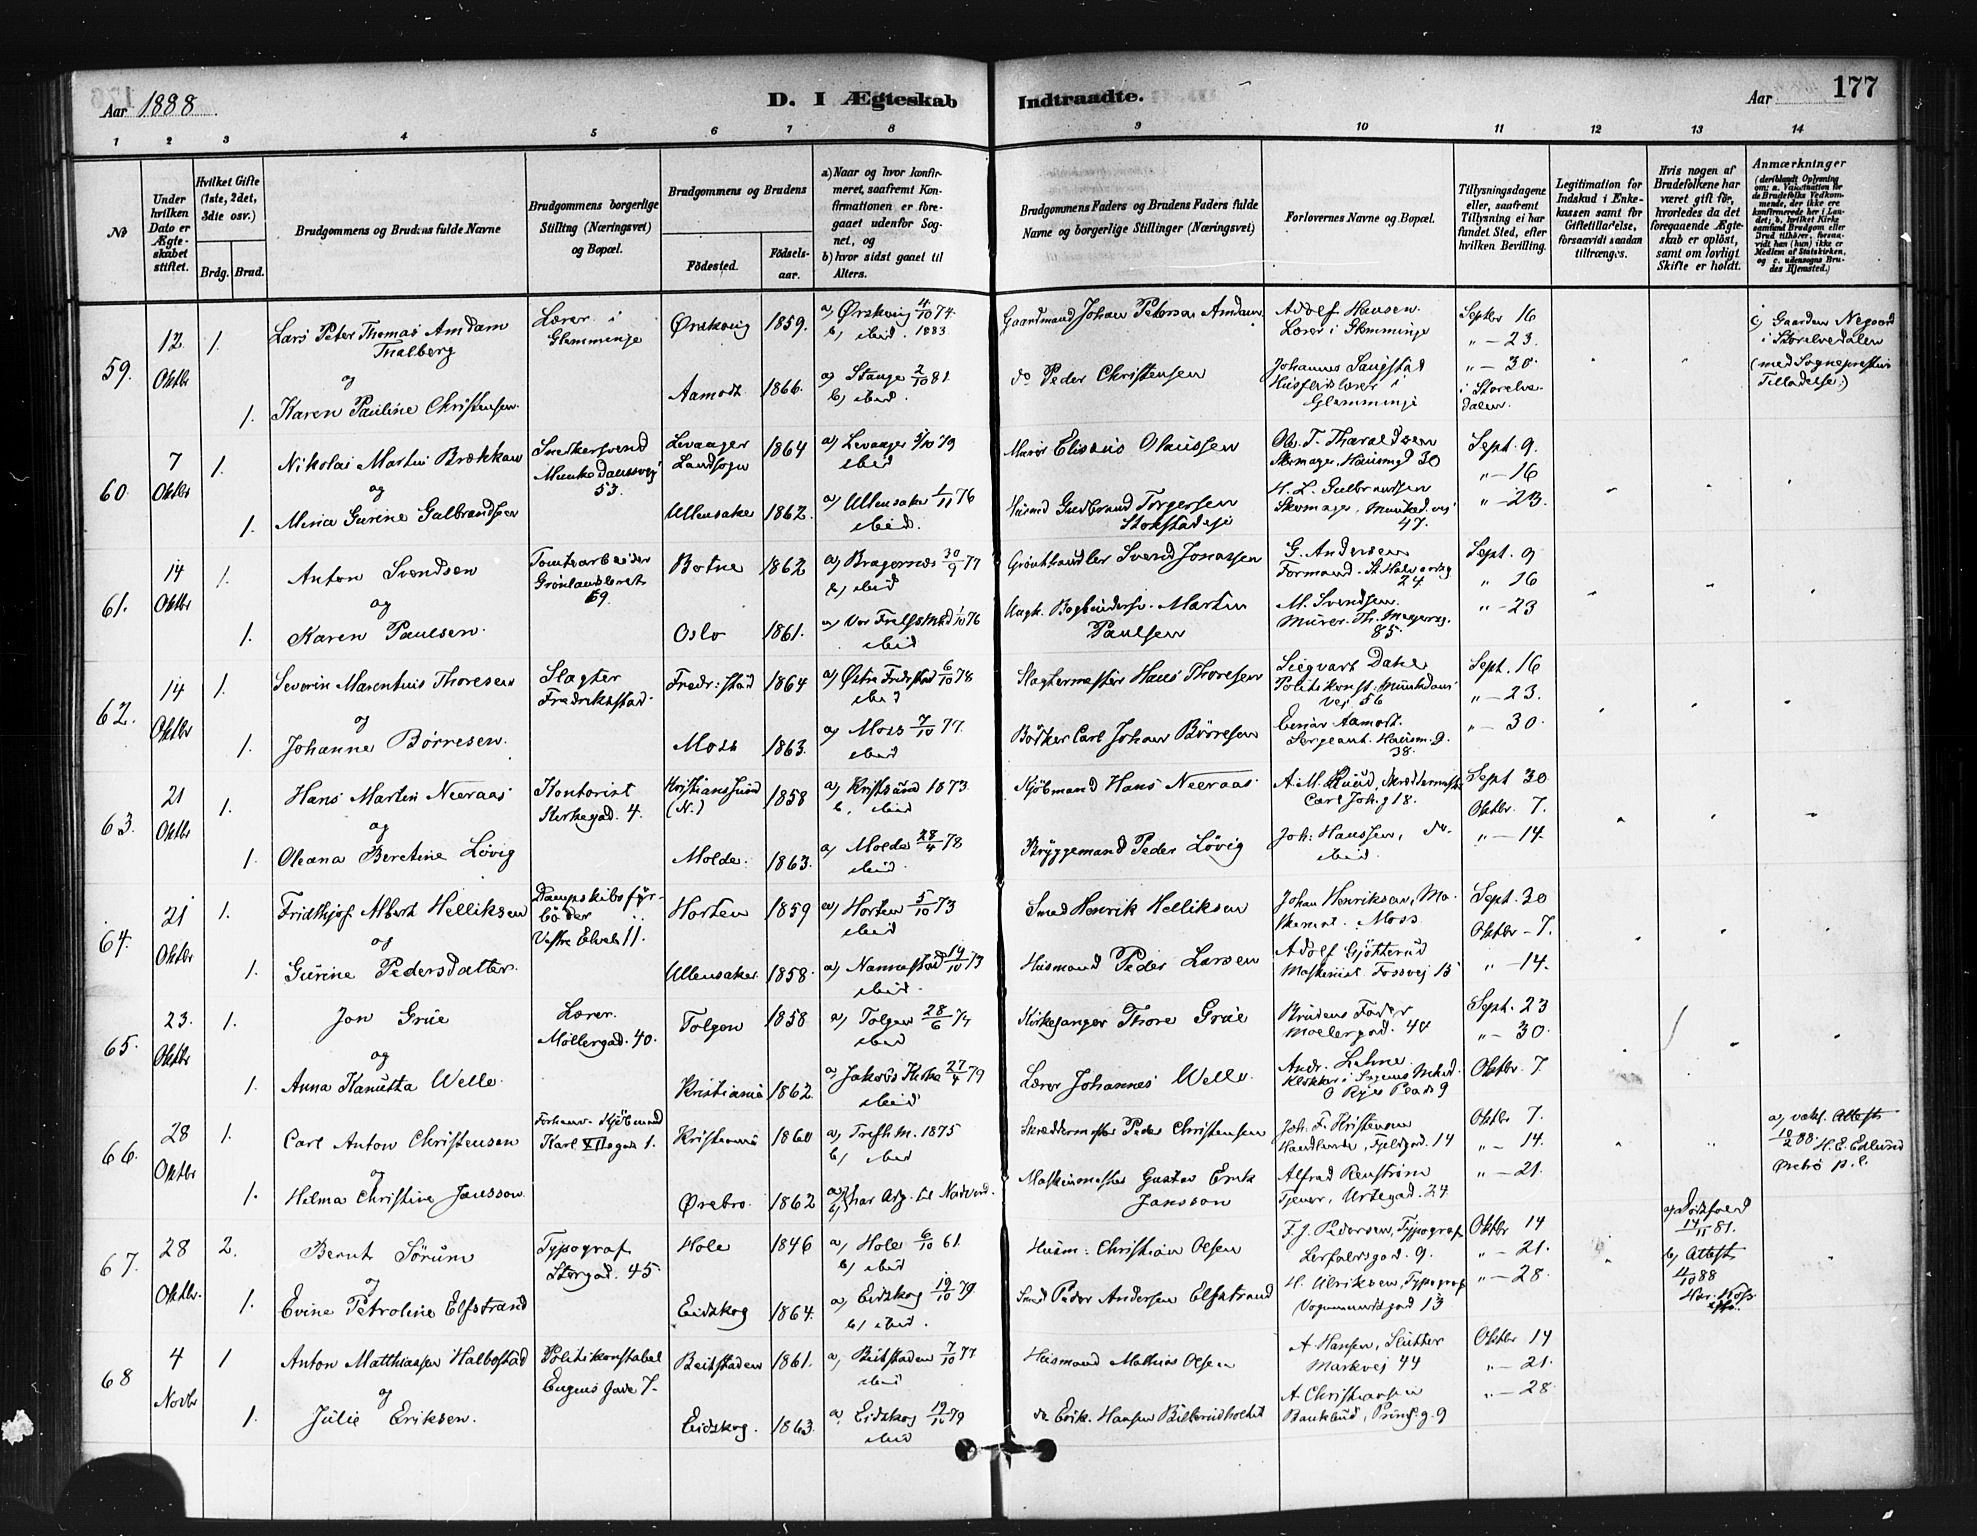 Aar 1888.
D. I Ægteskab Indtraadte.
Aar 177
1 2 3 4 5 6 7 8 9 10 11 12 13 14
No
Under hvilken Dato er Ægteskabet stiftet.
Hvilket Gifte (1ste, 2det, 3die osv.)
Brdg. Brud.
Brudgommens og Brudens fulde Navne
Brudgommens borgerlige Stilling (Næringsvei) og Bopæl.
Brudgommens og Brudens
Fødested. Fødselsaar.
a) Naar og hvor konfirmeret, saafremt Konfirmationen er foregaaet udenfor Sognet, og
b) hvor sidst gaaet til Alters.
Brudgommens Faders og Brudens Faders fulde Navne og borgerlige Stillinger (Næringsvei)
Forlovernes Navne og Bopæl.
Tillysningsdagene eller, saafremt Tillysning ei har fundet Sted, efter hvilken Bevilling.
Legitimation for Indskud i Enkekassen samt for Giftetilladelse, forsaavidt saadan tiltrænges.
Hvis nogen af Brudefolkene har været gift før, hvorledes da det foregaaende Ægteskab er opløst, samt om lovligt Skifte er holdt.
Anmærkninger
(deriblandt Oplysning om: a. Vaksination for de Brudefolks Vedkommende, der ikke ere konfirmerede her i Landet; b. hvilket Kirkesamfund Brudgom eller Brud tilhører, forsaavidt han (hun) ikke er Medlem af Statskirken, og c. udensogns Brudes Hjemsted.)
59. 12 Oktbr 1. Lars Peter Thomas Amdam Thalberg
Lærer i Glemminge
Ørskoug 1859. a) Ørskoug 4/10 74. b) ibid. 1883
Gaardmand Johan Peterson Amdam
Adolf Hansen Lærer i Glemminge
Septbr 16
" — 23.
" — 30.
i Storelvedalen
c) Gaarden Negaard i Storelvedalen (med Sognepresten Tilladelse.)
og
1. Karen Pauline Christensen
Aamodt 1866. a) Stange 2/10 81. b) ibid.
do Peder Christensen
Johannes Saugstad Husflidslærer i Glemminge
60. 7 Oktbr 1. Nikolai Martin Brækkan
Snedkersvend Munkedamsvej 53.
Levanger Landsogn 1864 a) Levanger 5/10 79 ibid
Murer Eliseus Olaussen
Ole T. Tharaldsen Skomager, Hausmgd 30
Sept. 9.
" — 16
" — 23.
og
1. Mina Gurine Gulbrandsen
Ullensaker 1862. a) Ullensaker 1/11 76 ibid.
Husmd Gudbrand Torgersen Stokstadeje
H. L. Gulbrandsen Skomager, Munked.vej 47.
61. 14 Oktbr 1. Anton Svendsen
Tomtearbeider Grønlandsleret 59.
Botne 1862 a) Bragernes 30/9 77 b) ibid
Grønthandler Svend Jonassen
G. Andersen Formand. St. Halvardsg 24.
Sept. 9
" 16
" — 23
og
1. Karen Paulsen.
Oslo 1861. a) Vor Frelsers Mhd 1/10 76 ibid
Ungk. Bogbindersv. Martin Paulsen
M. Svendsen. Murer. Th. Meyersg. 85.
62. 14 Oktbr 1. Severin Marenthius Thoresen
Slagter Fredrikstad.
Fredr:stad 1864 a) Østre Fredrstad 6/10 78 ibid
Slagtermester Hans Thoresen
Siegvart Dahl Politikonst. Munkdams vej 56
Sept. 16
" — 23.
" — 30.
og
1. Johanne Børresen.
Moss 1863. a) Moss 7/10 77. ibid
Bødker Carl Johan Børresen
Einar Aamodt. Sergeant. Hausm. g. 38.
63. 21 Oktbr 1. Hans Martin Neeraas
Kontorist Kirkegad. 4.
Kristianssund (N.) 1858 a) Kristsund 1873. b. ibid
Kjøbmand Hans Neeraas
A. M. Ruud, Skræddermester Carl Joh. g 18.
Sept 30
Oktbr. 7.
" — 14.
og
1. Oleana Beretine Løvig
Molde. 1863. a) Molde 28/4 78 ibid.
Bryggemand Peder Løvig
Joh: Hanssen, do. ibid.
64. 21 Oktbr 1. Fridthjof Albert Helliksen
Dampskibsfyrbøder Vestre Elveb. 11.
Horten 1859 a) Horten 5/10 73 ibid
Smed Henrik Helliksen
Johan Henriksen, Maskinist. Moss
Sept. 30
Oktbr — 7.
" — 14.
og
1. Gurine Pedersdatter.
Ullensaker 1858. a) Nannestad 19/10 73 ibid.
Husmand Peder Larsen
Adolf Gjøtterud Maskinist Fossvej 15
65. 23. Oktbr 1. Jon Grue
Lærer. Møllergad. 40.
Tolgen 1858 a) Tolgen 28/6 74 ibid
Kirkesanger Thore Grue
Brudens Fader Møllergad. 44
Sept. 23
" — 30.
Oktbr 7
og
1. Anna Kanutta Welle.
Kristiania 1862. a) Jakobs Kirke 27/4 79 ibid
Lærer Johannes Welle.
Andr. Lehne. Klokker i Sagenes Mhed. O. Ryes Plads 9
66. 28 Oktbr 1. Carl Anton Christensen
Forhenv. Kjøbmand Karl XII's gad 1.
Kristiania 1860 a) Trefh M. 1875 b) ibid
Skræddermester Peder Christensen
Joh. F. Kristensen Handlende, Fjeldgad. 14
Oktbr 7.
" — 14.
" — 21.
a) vakc. Attest 10/2 88. H. E. Edlund Ørebro p. l.
og
1. Hilma Christine Jansson
Ørebro 1862 har Adg. til Nadverd.
Maskinmester Gustav Erik Jansson
Alfred Renstrøm Tjener, Urtegad. 24
67. 28 Oktbr. 2. Bernt Sørum
Typograf Storgad. 45
Hole 1846 a) Hole 6/10 61. b) ibid
Husm: Christian Olsen
F. J. Pedersen, Typograf Lerfaldsgad. 9.
Oktbr 14
" — 21.
" — 28.
a) Dødsfald 14/11 81. b) Attest 4/10 88
og
1. Evine Petroline Elfstrand
Eidskog 1864. a) Eidskog 19/10 79. b) ibid.
Smed Peder Andersen Elfstrand
H. Ulriksen, Typograf Vognmandsgad 13
68 4 Novbr 1 Anton Matthiassen Halbostad
Politikonstabel Eugens Gade 7.
Beitstaden 1861. a) Beitstaden 7/10 77 ibid
Husmand Mathias Olsen
A. Hansen, Slutter Markvej 44
Oktbr 14
" — 21.
" — 28.
og
1. Julie Eriksen.
Eidskog. 1863. a) Eidskog 19/10 79 ibid
do Erik Hansen
A. Christiansen Bankbud, Prinds. g. 9